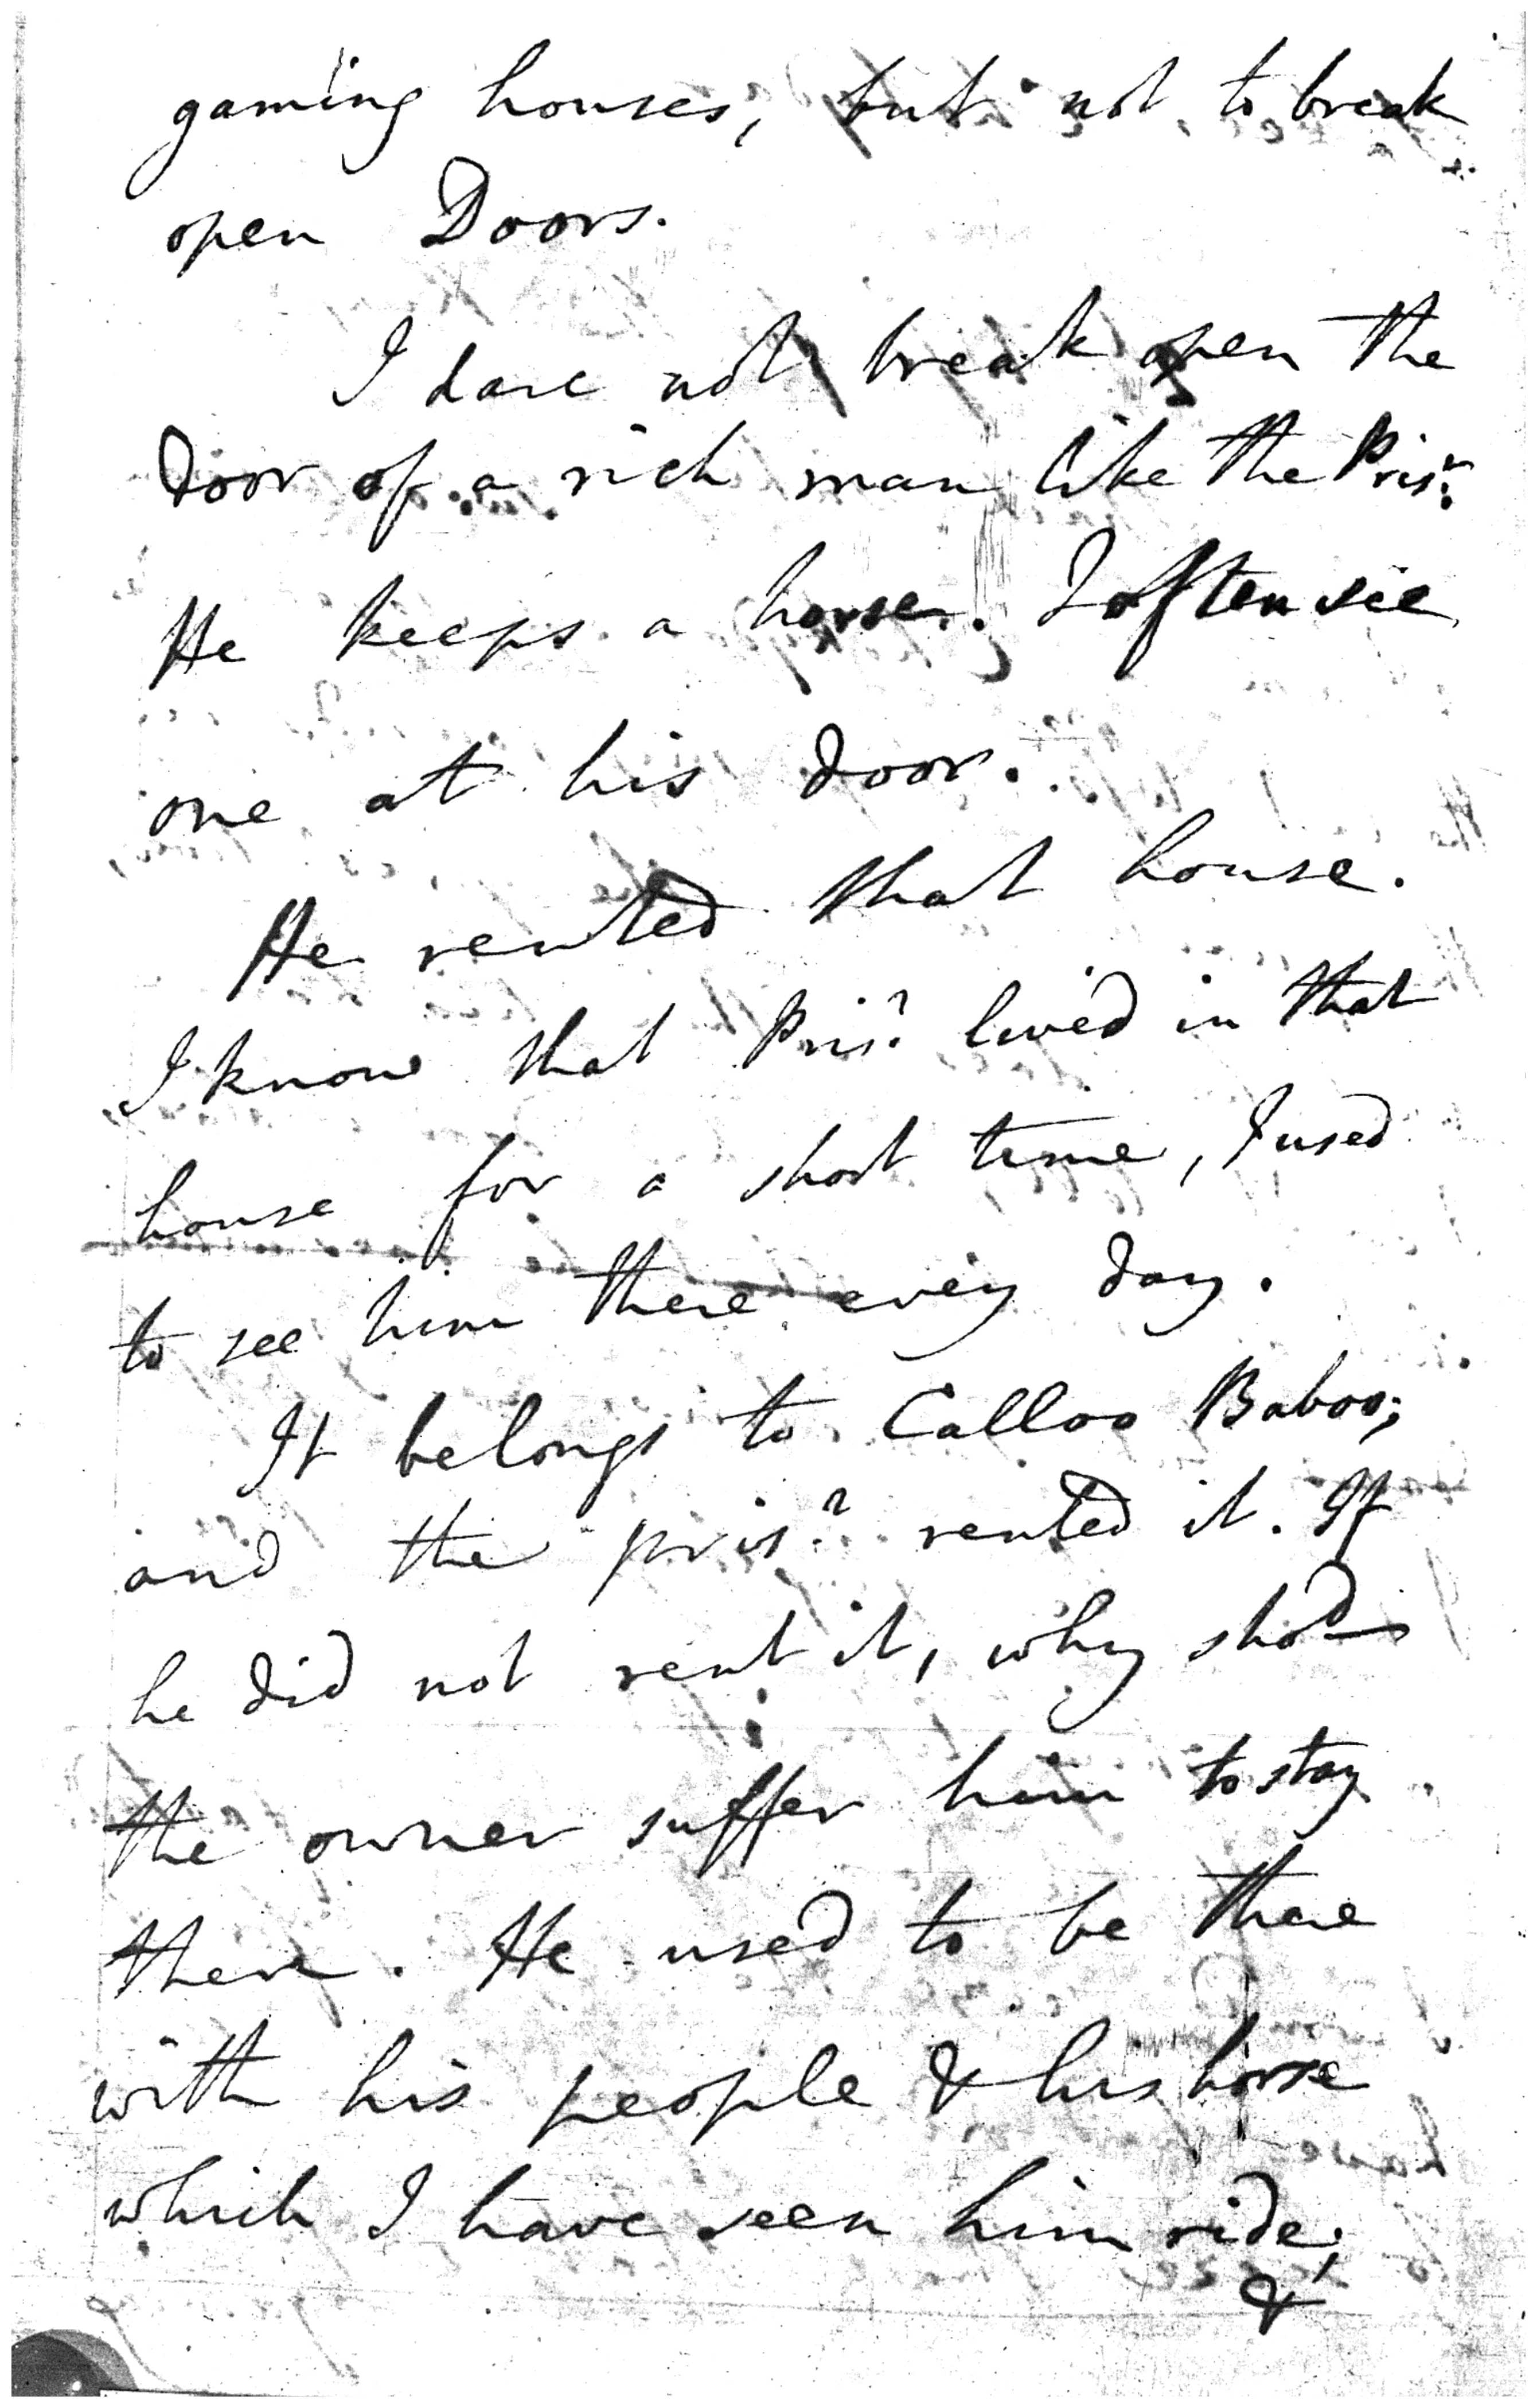 gaming houses, but not to break
open Doors.
I dare not break open the
Door of a rich man like the Prisr.
He keeps a horse. I often see
one at his door.
He rented that house.
I know that Prisr. lived in that
house for a short time, I used
to see him there every day.
It belongs to Calloo Baboo;
and the prisr. rented it. If
he did not rent it, why shod
the owner suffer him to stay
there. He used to be there
with his people & his horse
which I have seen him ride;
&